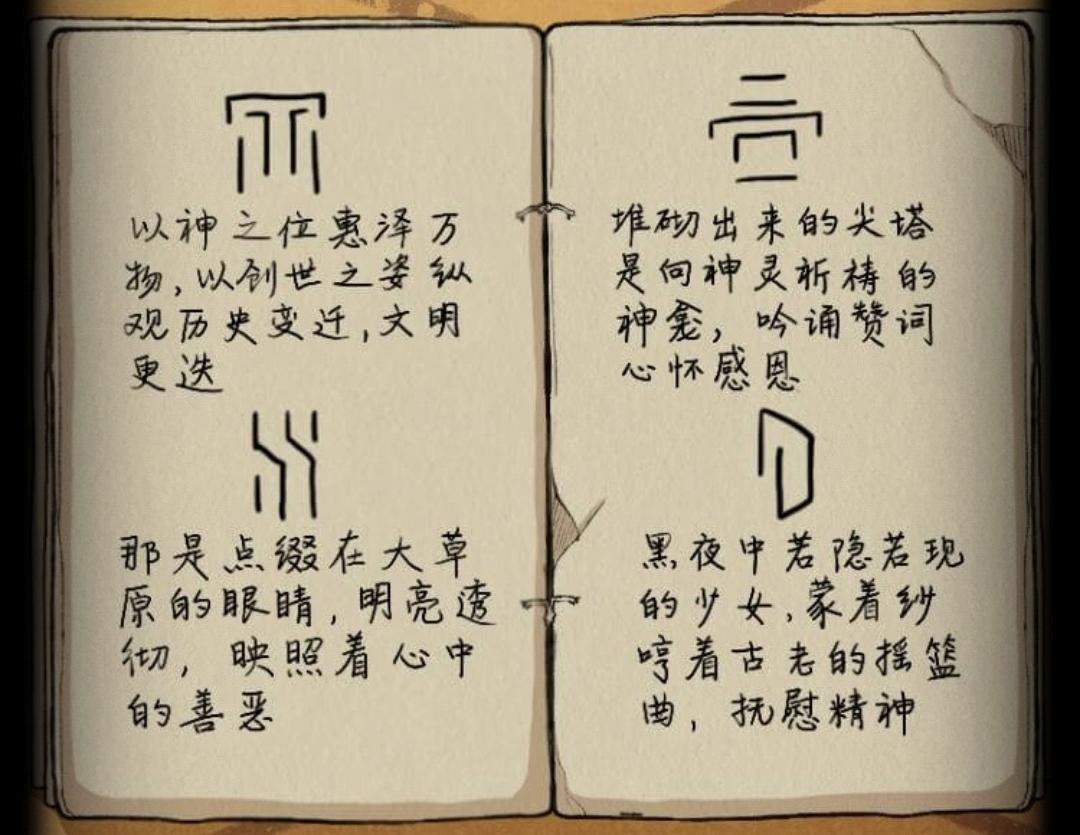 以神之位惠泽万
物,以创世之姿纵
观历史变迁,文明
更迭
那是点缀在大草
原的眼睛,明亮透
彻,映照着心中
的善恶
堆砌出来的尖塔
是向神灵祈祷的
神龛,吟诵赞词
心怀感恩
黑夜中若隐若现
的少女,蒙着纱
哼着古老的摇篮
曲,抚慰精神